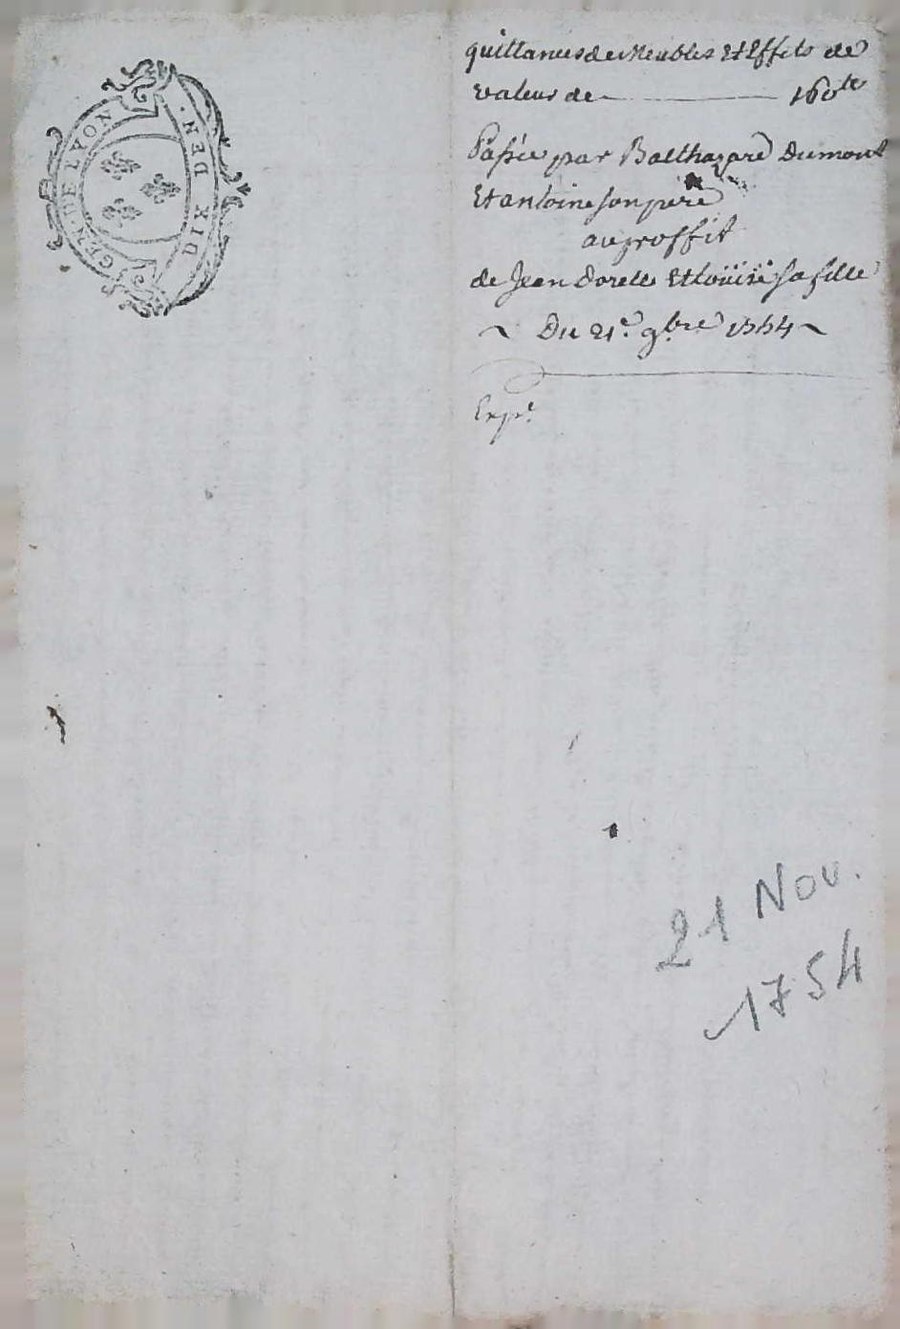 GEN · DE LYON · DIX DEN ·
quittance de Meubles Et Effets de
valeur de 160 lt
Passée par Balthazard Dumont
Et antoine son pere
au proffit
de Jean Dorelle Et loüise sa fille
Du 21e. 9bre 1754
Expé.
21 Nov.
1754